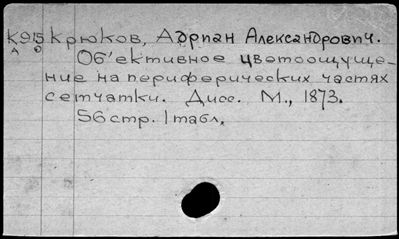 К915 Крюков, Адриан Александрович.
А
Об'ективное цветоощуще-
ние на периферических частях
сетчатки. Дисс. М., 1873.
56 стр. 1 табл.